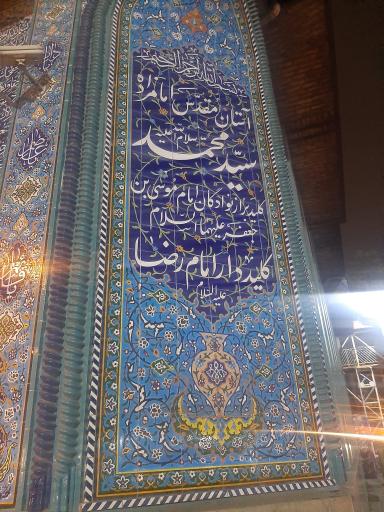 بسم الله الرحمن الرحیم
آستان مقدس امامزاده
سید محمد سلام الله علیه
کلید دار از نوادگان امام موسی بن
جعفر علیهما السلام
کلید دار امام رضا
علیه السلام